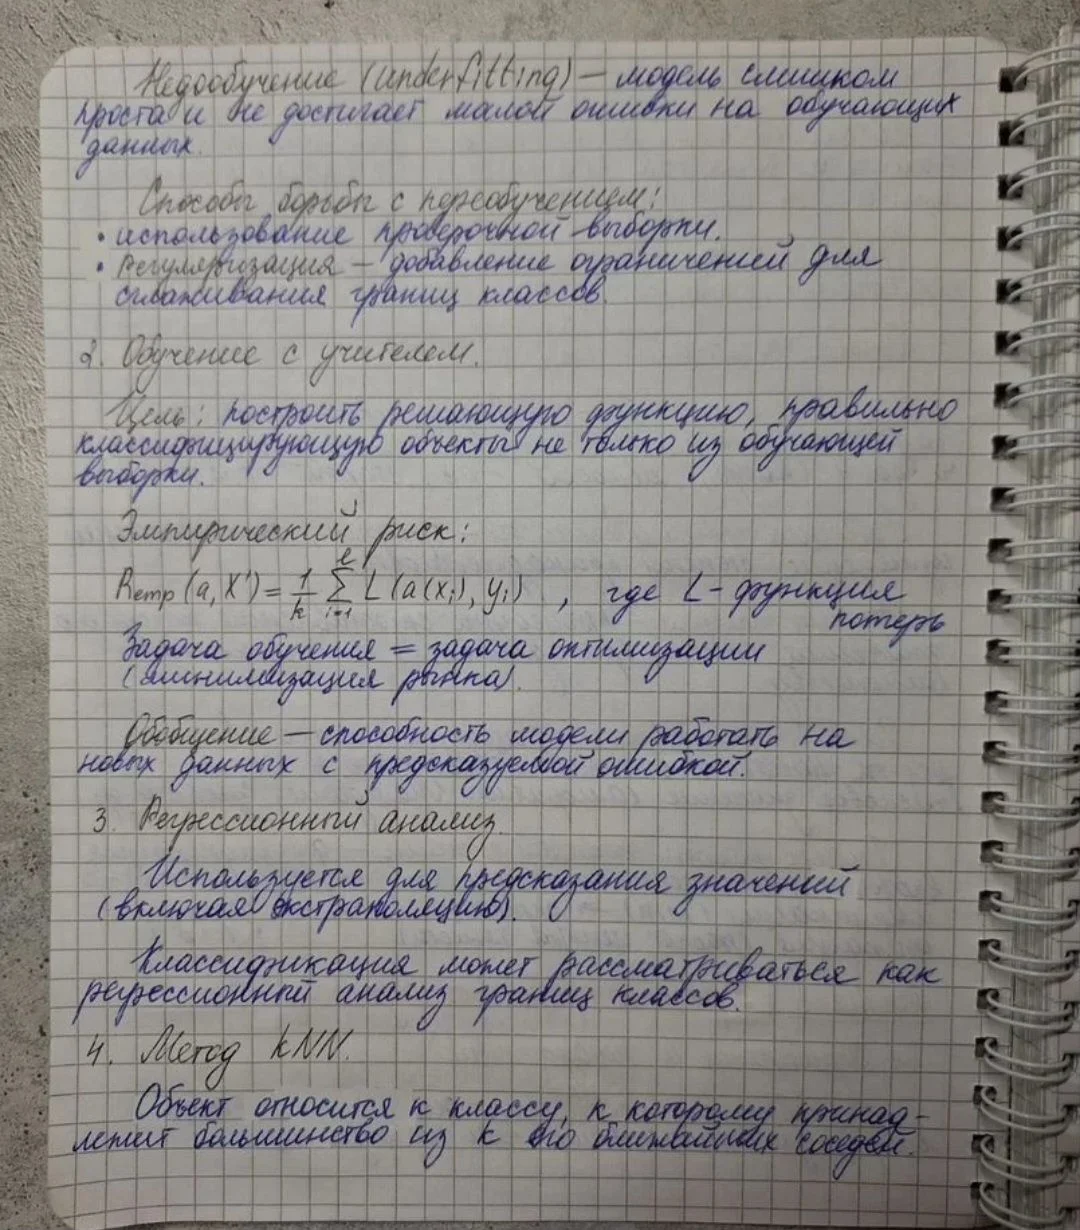 Недообучение (underfitting) — модель слишком
проста и не достигает малой ошибки на обучающих
данных.
Способы борьбы с переобучением:
• использование проверочной выборки.
• Регуляризация — добавление ограничений для
сглаживания границ классов.
2. Обучение с учителем.
Цель: построить решающую функцию, правильно
классифицирующую объекты не только из обучающей
выборки.
Эмпирический риск:
Remp (a, X') = 1/k ℓ∑i=1 L (a(xi), yi) , где L - функция
потерь
Задача обучения = задача оптимизации
(минимизация рынка).
Обобщение — способность модели работать на
новых данных с предсказуемой ошибкой.
3. Регрессионный анализ.
Используется для предсказания значений
(включая экстраполяцию).
Классификация может рассматриваться как
регрессионный анализ границ классов.
4. Метод kNN.
Объект относится к классу, к которому принад-
лежит большинство из k его ближайших соседей.